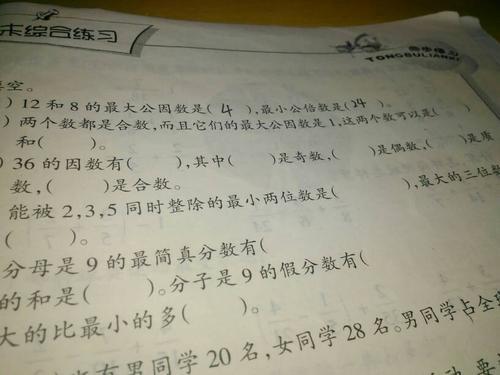 末综合练习
TONGBULIANXI
空。
) 12 和 8 的最大公因数是( 4 ),最小公倍数是( 24 )。
) 两个数都是合数,而且它们的最大公因数是 1,这两个数可以是(
和( )。
) 36 的因数有( ),其中( )是奇数,( )是偶数,( )是质
数,( )是合数。
能被 2,3,5 同时整除的最小两位数是( ),最大的三位数
( )。
分母是 9 的最简真分数有(
的和是( )。分子是 9 的假分数有(
大的比最小的多( )。
有男同学 20 名,女同学 28 名。男同学占全